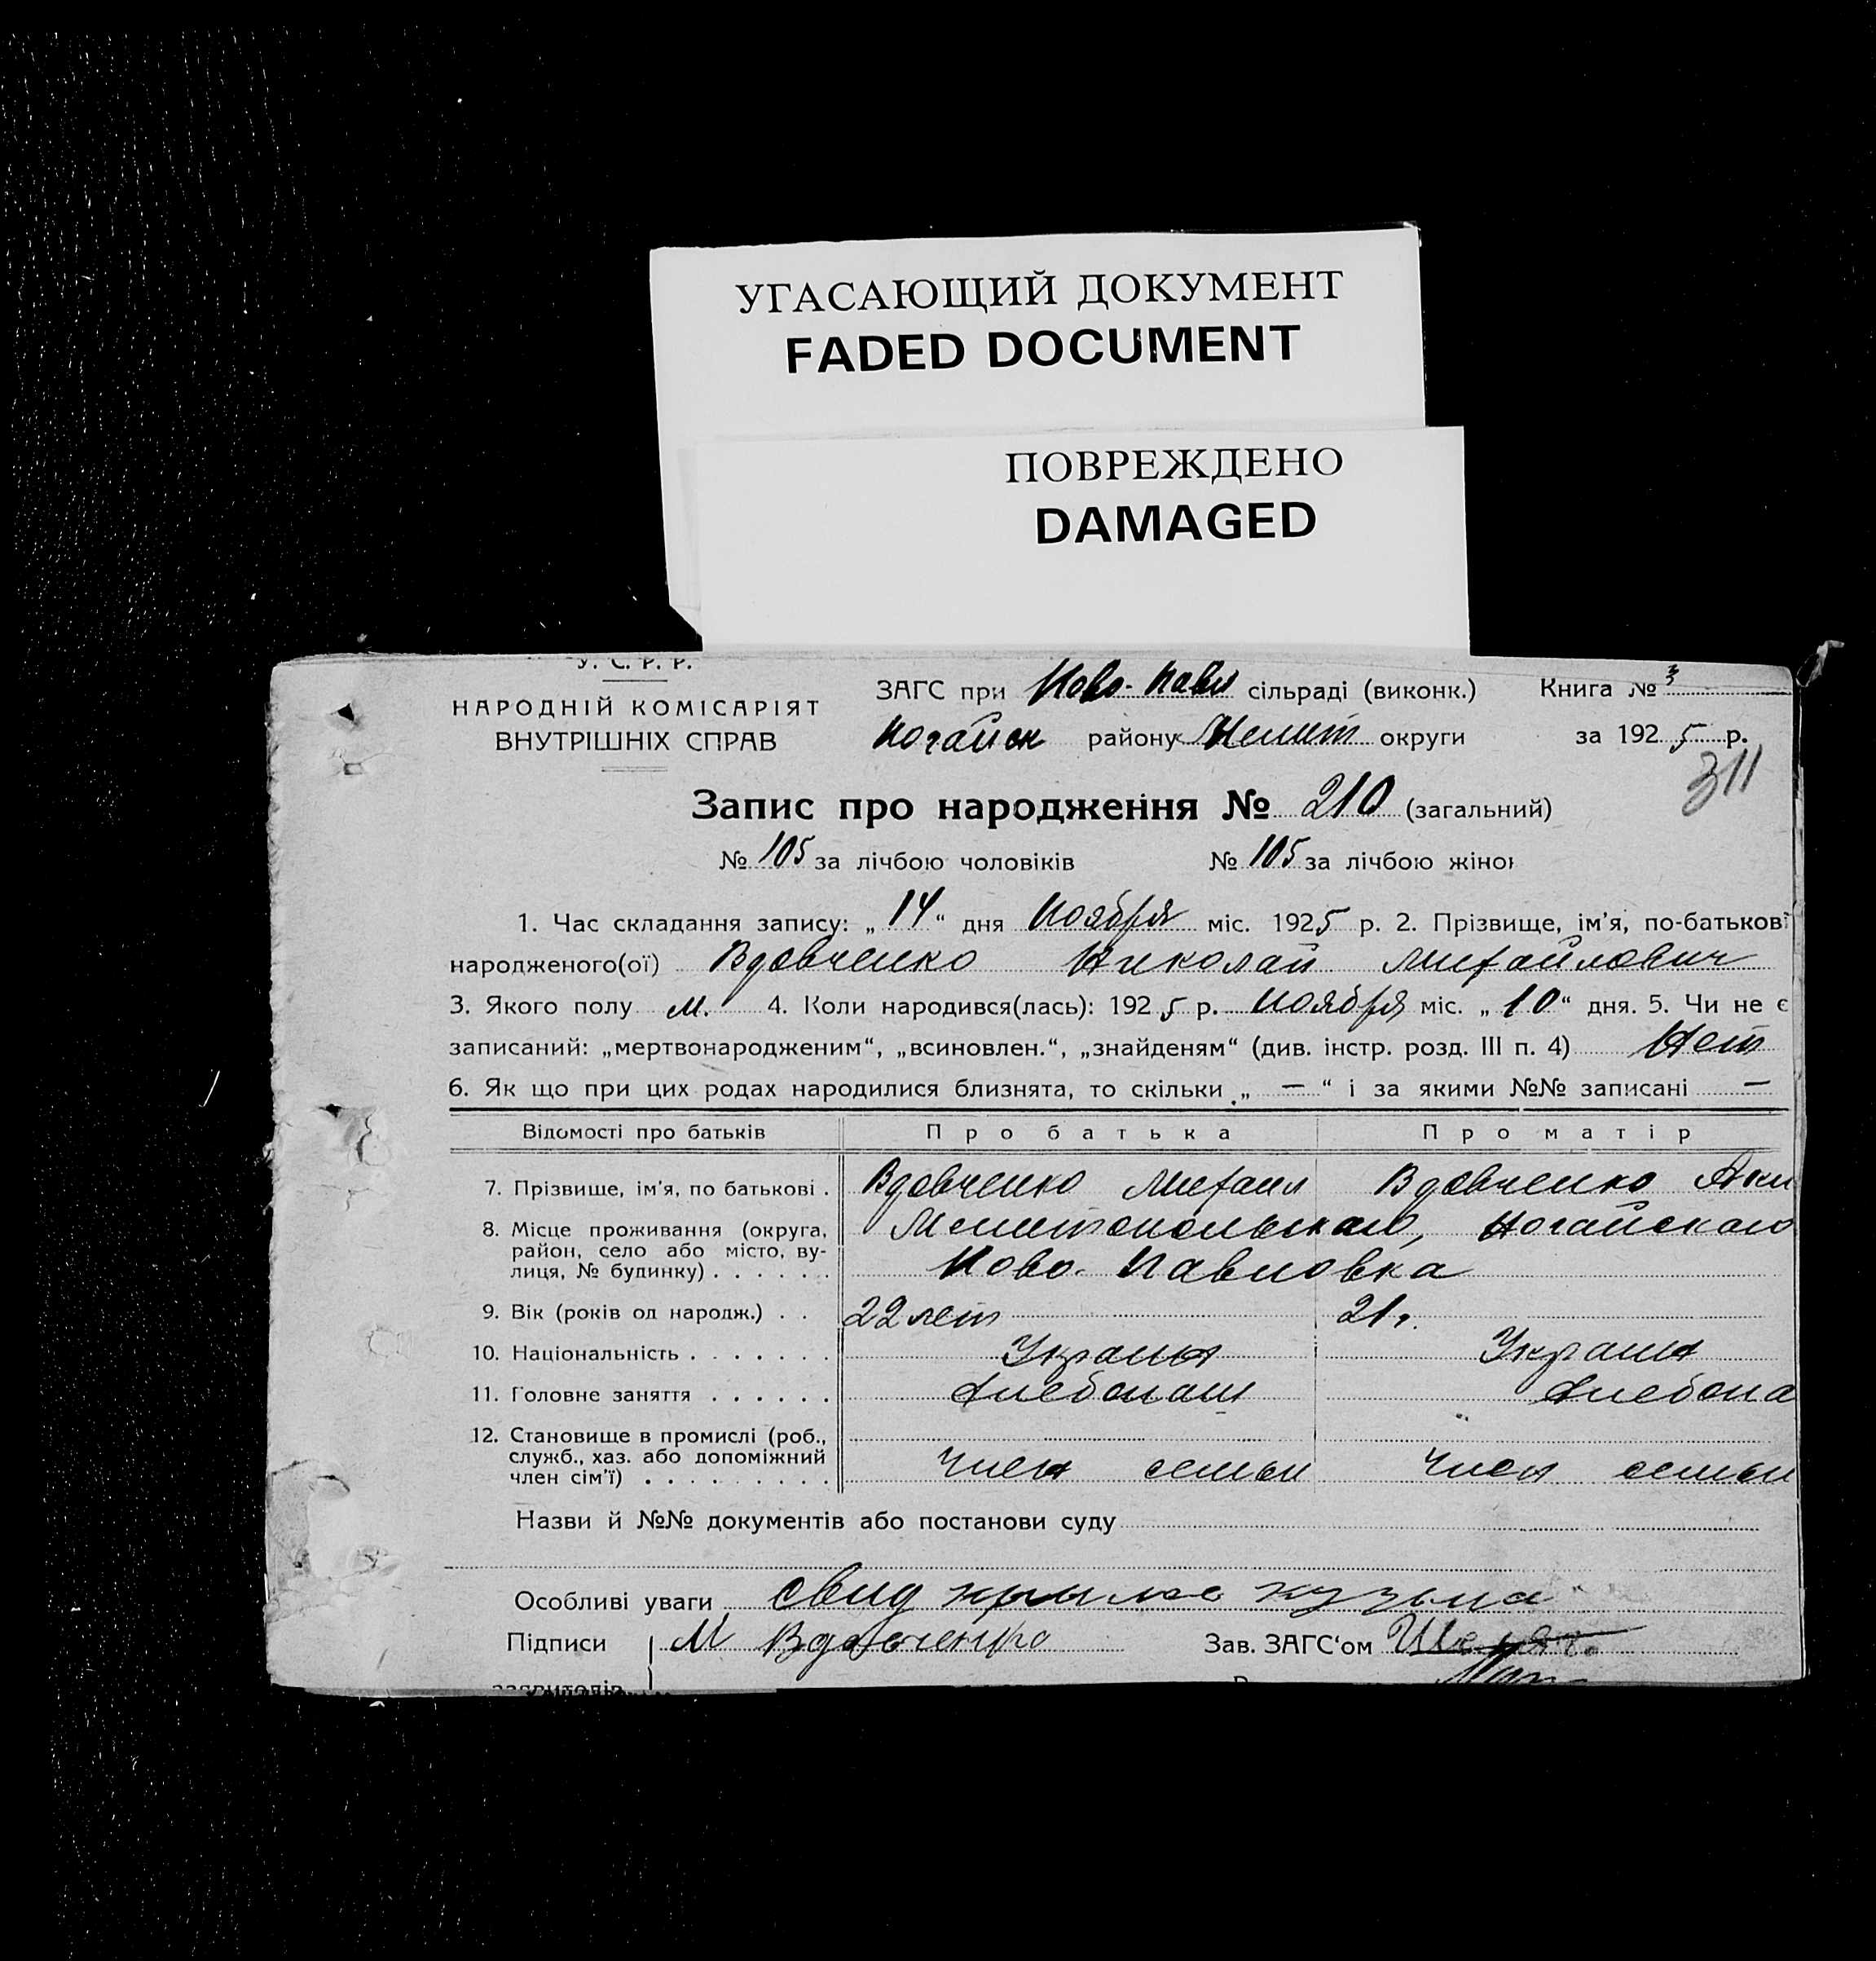 УГАСАЮЩИЙ ДОКУМЕНТ
FADED DOCUMENT
ПОВРЕЖДЕНО
DAMAGED
У. С. Р. Р.
НАРОДНІЙ КОМІСАРІЯТ
ВНУТРІШНІХ СПРАВ
ЗАГС при Ново-Павл сільраді (виконк.)
Ногайск району Мелит округи
Книга № 3
за 1925 р.
311
Запис про народження № 210 (загальний)
№ 105 за лічбою чоловіків № 105 за лічбою жінон
1. Час складання запису: „14“ дня Ноября міс. 1925 р. 2. Прізвище, ім'я, по-батькові
народженого(ої) Вдовченко Николай Михайлович
3. Якого полу м. 4. Коли народився(лась): 1925 р. Ноября міс. „10“ дня. 5. Чи не є
записаний: „мертвонародженим“, „всиновлен.“, „знайденям“ (див. інстр. розд. III п. 4) Нет
6. Як що при цих родах народилися близнята, то скільки „ — “ і за якими №№ записані —
Відомості про батьків Про батька Про матір
7. Прізвище, ім'я, по батькові . Вдовченко Михаил Вдовченко
8. Місце проживання (округа, Мелитопольского, Ногайского
район, село або місто, ву-
лиця, № будинку) . . . . . . Ново-Павловка
9. Вік (років од народж.) . . 22 лет 21 г.
10. Національність . . . . . . . Украин Украин
11. Головне заняття . . . . . . Хлебопаш Хлебопа
12. Становище в промислі (роб.,
служб., хаз. або допоміжний
член сім'ї) . . . . . . . . . Член семьи Член семьи
Назви й №№ документів або постанови суду
Особливі уваги свид
Підписи М Вдовченко Зав. ЗАГС'ом
заявителів